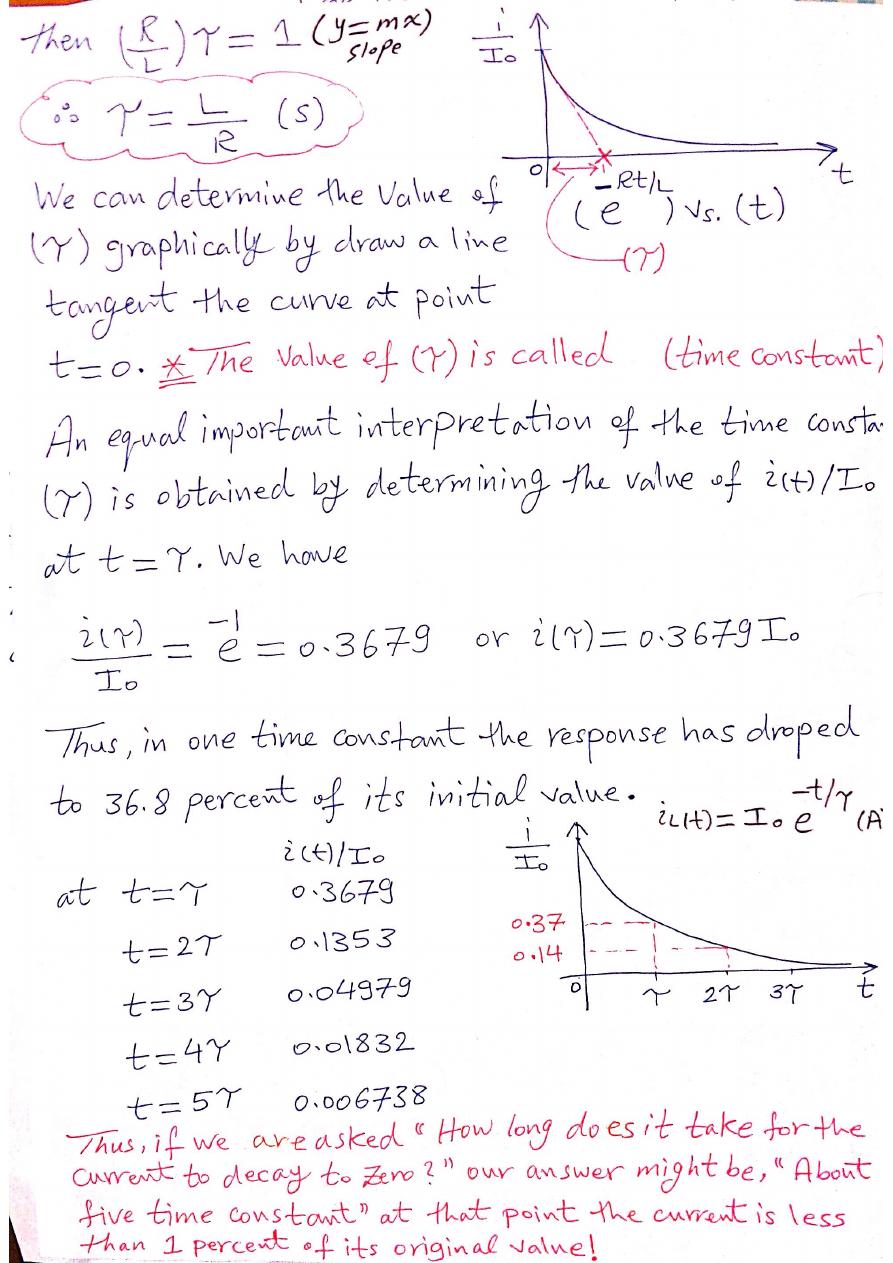 then (R/L)τ = 1 (y=mx)
slope
∴ τ = L/R (s)
i/I₀
0
t
(e^-Rt/L) vs. (t)
(τ)
We can determine the Value of
(τ) graphically by draw a line
tangent the curve at point
t=0. * The Value of (τ) is called (time constant)
An equal important interpretation of the time consta
(τ) is obtained by determining the value of i(t)/I₀
at t = τ. We have
i(τ)/I₀ = e^-1 = 0.3679 or i(τ) = 0.3679 I₀
Thus, in one time constant the response has droped
to 36.8 percent of its initial value.
iL(t) = I₀ e^-t/τ (A
i(t)/I₀
at t=τ 0.3679
t=2τ 0.1353
t=3τ 0.04979
t=4τ 0.01832
t=5τ 0.006738
i/I₀
0.37
0.14
0 τ 2τ 3τ t
Thus, if we are asked "How long does it take for the
current to decay to Zero?" our answer might be, "About
five time constant" at that point the current is less
than 1 percent of its original value!